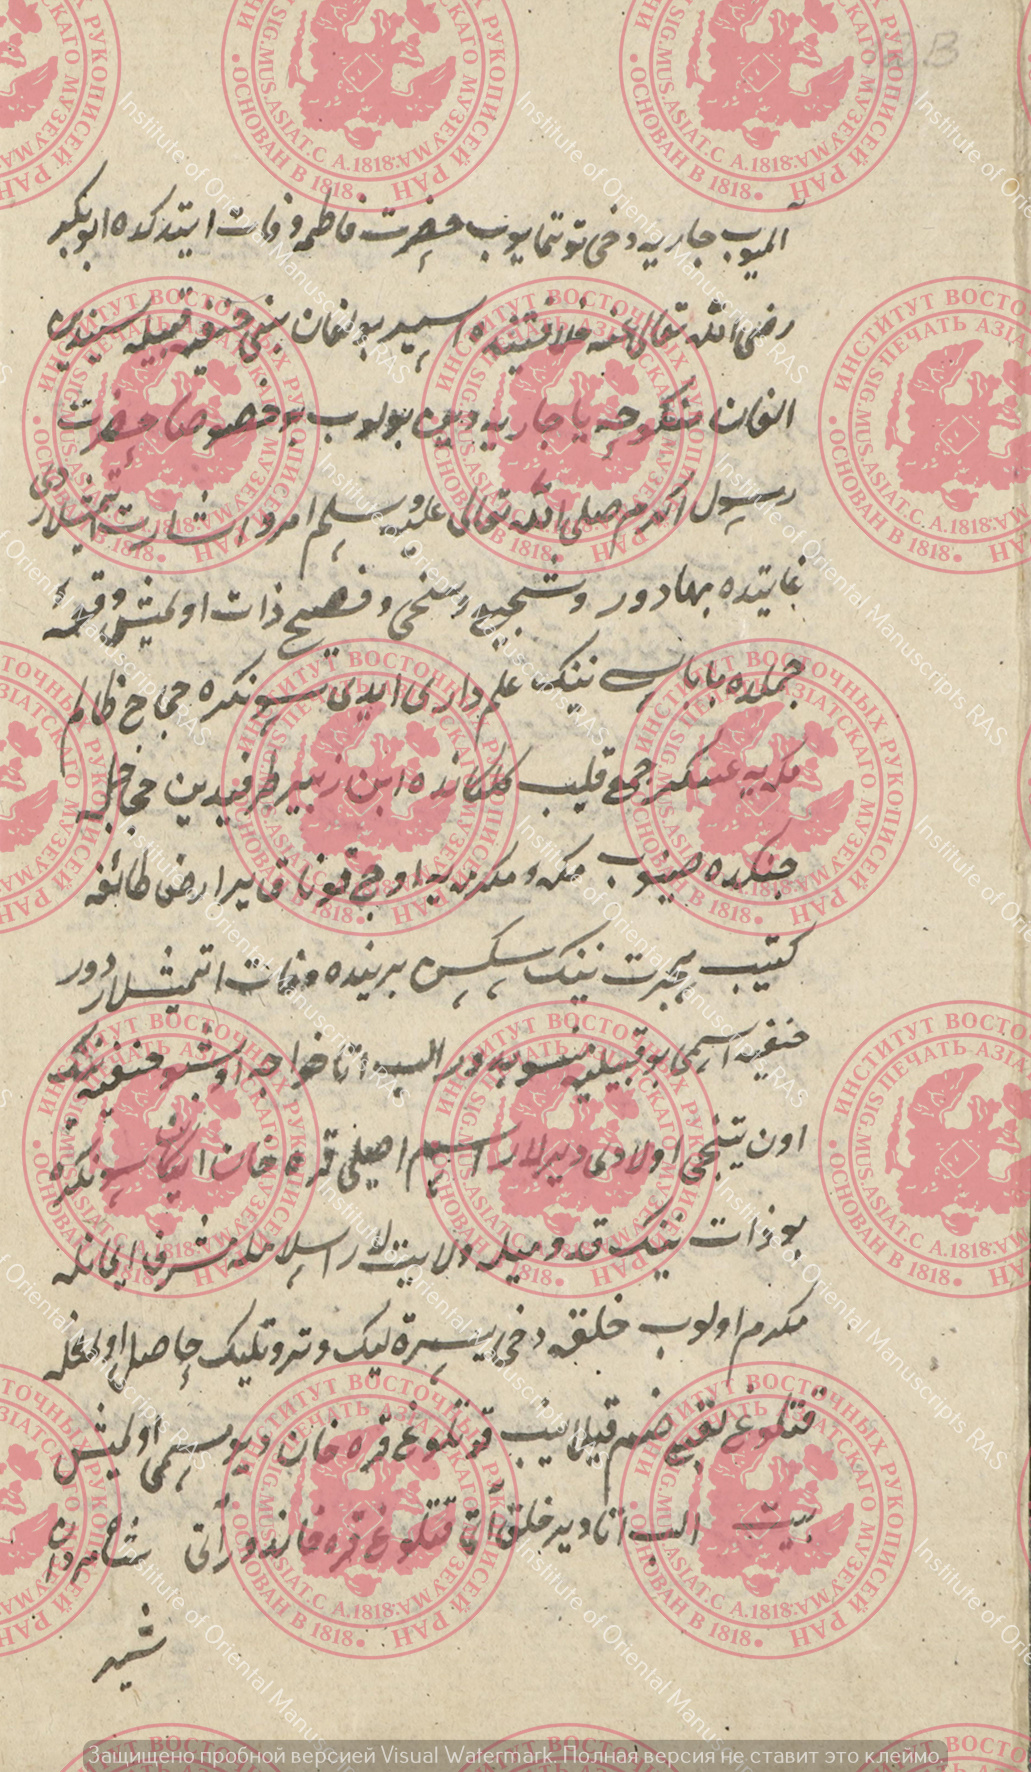 المیوب جاریه دخی توتمایوب حضرت فاطمه وفات ایتدکده ابوبکر
رضی الله تعالی عنه خلافتنده اسیر بولغان بنی حنفیه قبیله سیندین
الغان منکوحه یا جاریه دین بولوب بو خصوصدا حضرت
رسول اکرم صلی الله تعالی علیه وسلم امر و اشارت ایتمشلار دی
غایتده بهادور و شجیع و سخی و فصیح ذات اولمیش
جملده باباسی ننک علم داری ایدی سونکره حجاج ظالم
مکه یه عسکر جمع قلیب کلکانده ابن زبیر طرفیدین حجاجله
جنکده صینوب مکه و مکرمه یه اوچ قوناق یر ارض طائفه
کتیب هجرت ننک سکسن برینده وفات اتمیشلاردور
حنفیه اسمی بو قبیلیه منسوبه دور الب اتا خواجه اوشبو حنفیه ننک
اون یتینجی اولادی دیرلار اسیم اصیلی قره خان ایکان سونکره
بو ذات ننک قدومیله ولایت لار اسلامله مشرف ایمانله
مکرم اولوب خلقه دخی یسرة لیک و تروتلیک حاصل اولمغله
قتلوغ لقبی ضم قیلالینیب قوتلوغ قره خان دیو مسمی اولمیش
بیت الب اتا دیر خلق آنی قتلوغ قره خاندور آتی شاه مردان
شیر
Защищено пробной версией Visual Watermark. Полная версия не ставит это клеймо.